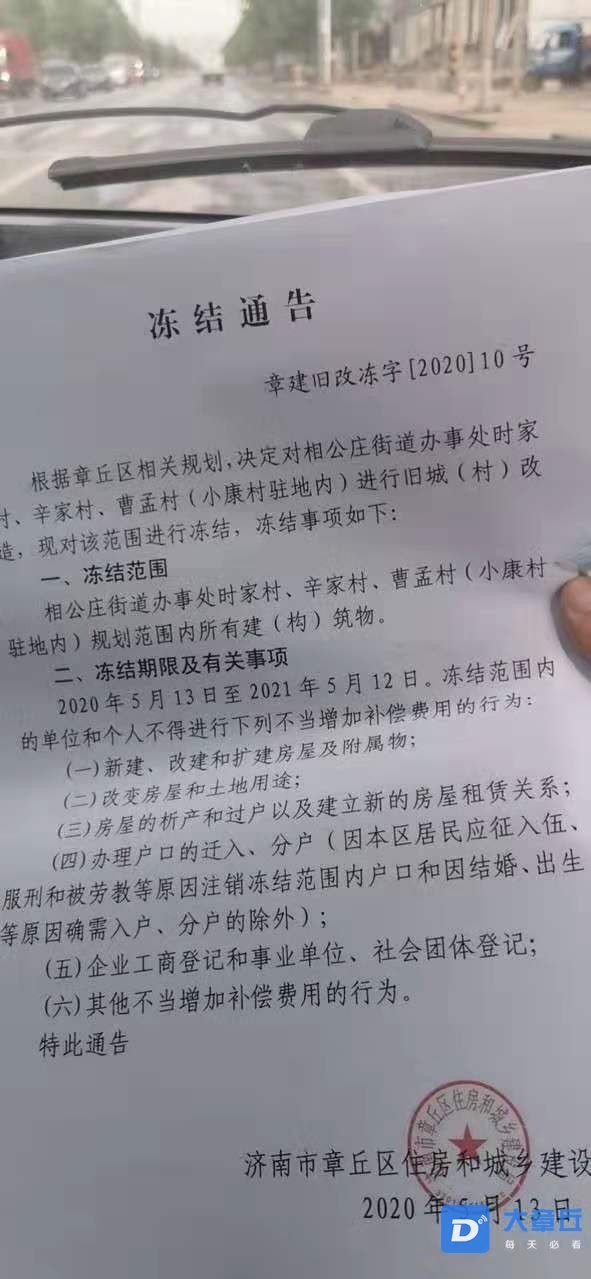 冻结通告
章建旧改冻字[2020]10号
根据章丘区相关规划,决定对相公庄街道办事处时家
村、辛家村、曹孟村(小康村驻地内)进行旧城(村)改
造,现对该范围进行冻结,冻结事项如下:
一、冻结范围
相公庄街道办事处时家村、辛家村、曹孟村(小康村
驻地内)规划范围内所有建(构)筑物。
二、冻结期限及有关事项
2020年5月13日至2021年5月12日。冻结范围内
的单位和个人不得进行下列不当增加补偿费用的行为:
(一)新建、改建和扩建房屋及附属物;
(二)改变房屋和土地用途;
(三)房屋的析产和过户以及建立新的房屋租赁关系;
(四)办理户口的迁入、分户(因本区居民应征入伍、
服刑和被劳教等原因注销冻结范围内户口和因结婚、出生
等原因确需入户、分户的除外);
(五)企业工商登记和事业单位、社会团体登记;
(六)其他不当增加补偿费用的行为。
特此通告
济南市章丘区住房和城乡建设
2020年5月13日
大章丘
每天必看